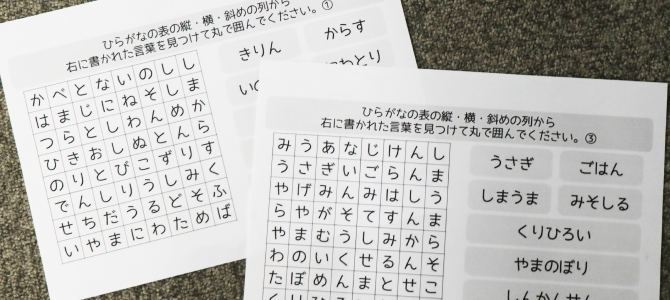 ひらがなの表の縦・横・斜めの列から
右に書かれた言葉を見つけて丸で囲んでください。①
かべとないのしし
はまじにねそしま
つらとしわんめか
ひきおしぬとんら
のりとびこずりす
でんしりうしみく
せちだうるどそふ
いやまにわためぱ
きりん
からす
いの
わとり
ひらがなの表の縦・横・斜めの列から
右に書かれた言葉を見つけて丸で囲んでください。③
みうあなじけんし
うさぎいごらんま
やげみんみはしう
らやがそてすんま
やまむうしみから
わのいくせるんそ
たぼめんまとせこ
うさぎ
ごはん
しまうま
みそしる
くりひろい
やまのぼり
しんかんせん